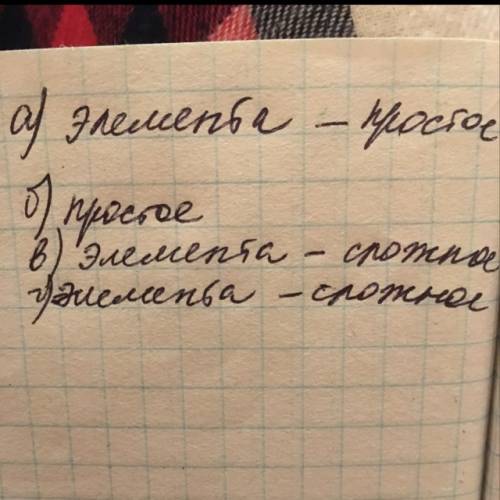 а) элемента – простое
б) простое
в) элемента – сложное
г) элемента – сложное